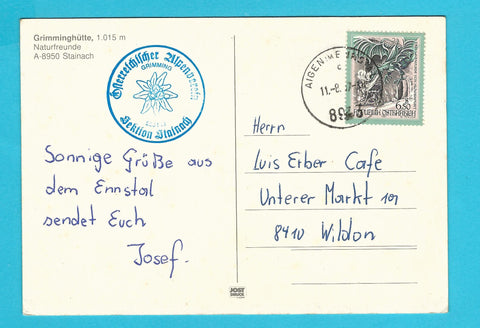 Grimminghütte, 1.015 m
Naturfreunde
A-8950 Stainach
Österreichischer Alpenverein
GRIMMING
Sektion Stainach
AIGEN IM
6.50
REPUBLIK ÖSTERREICH
Sonnige Grüße aus
dem Ennstal
sendet Euch
Josef.
Herrn
Luis Erber Cafe
Unterer Markt 109
8410 Wildon
JOST
DRUCK